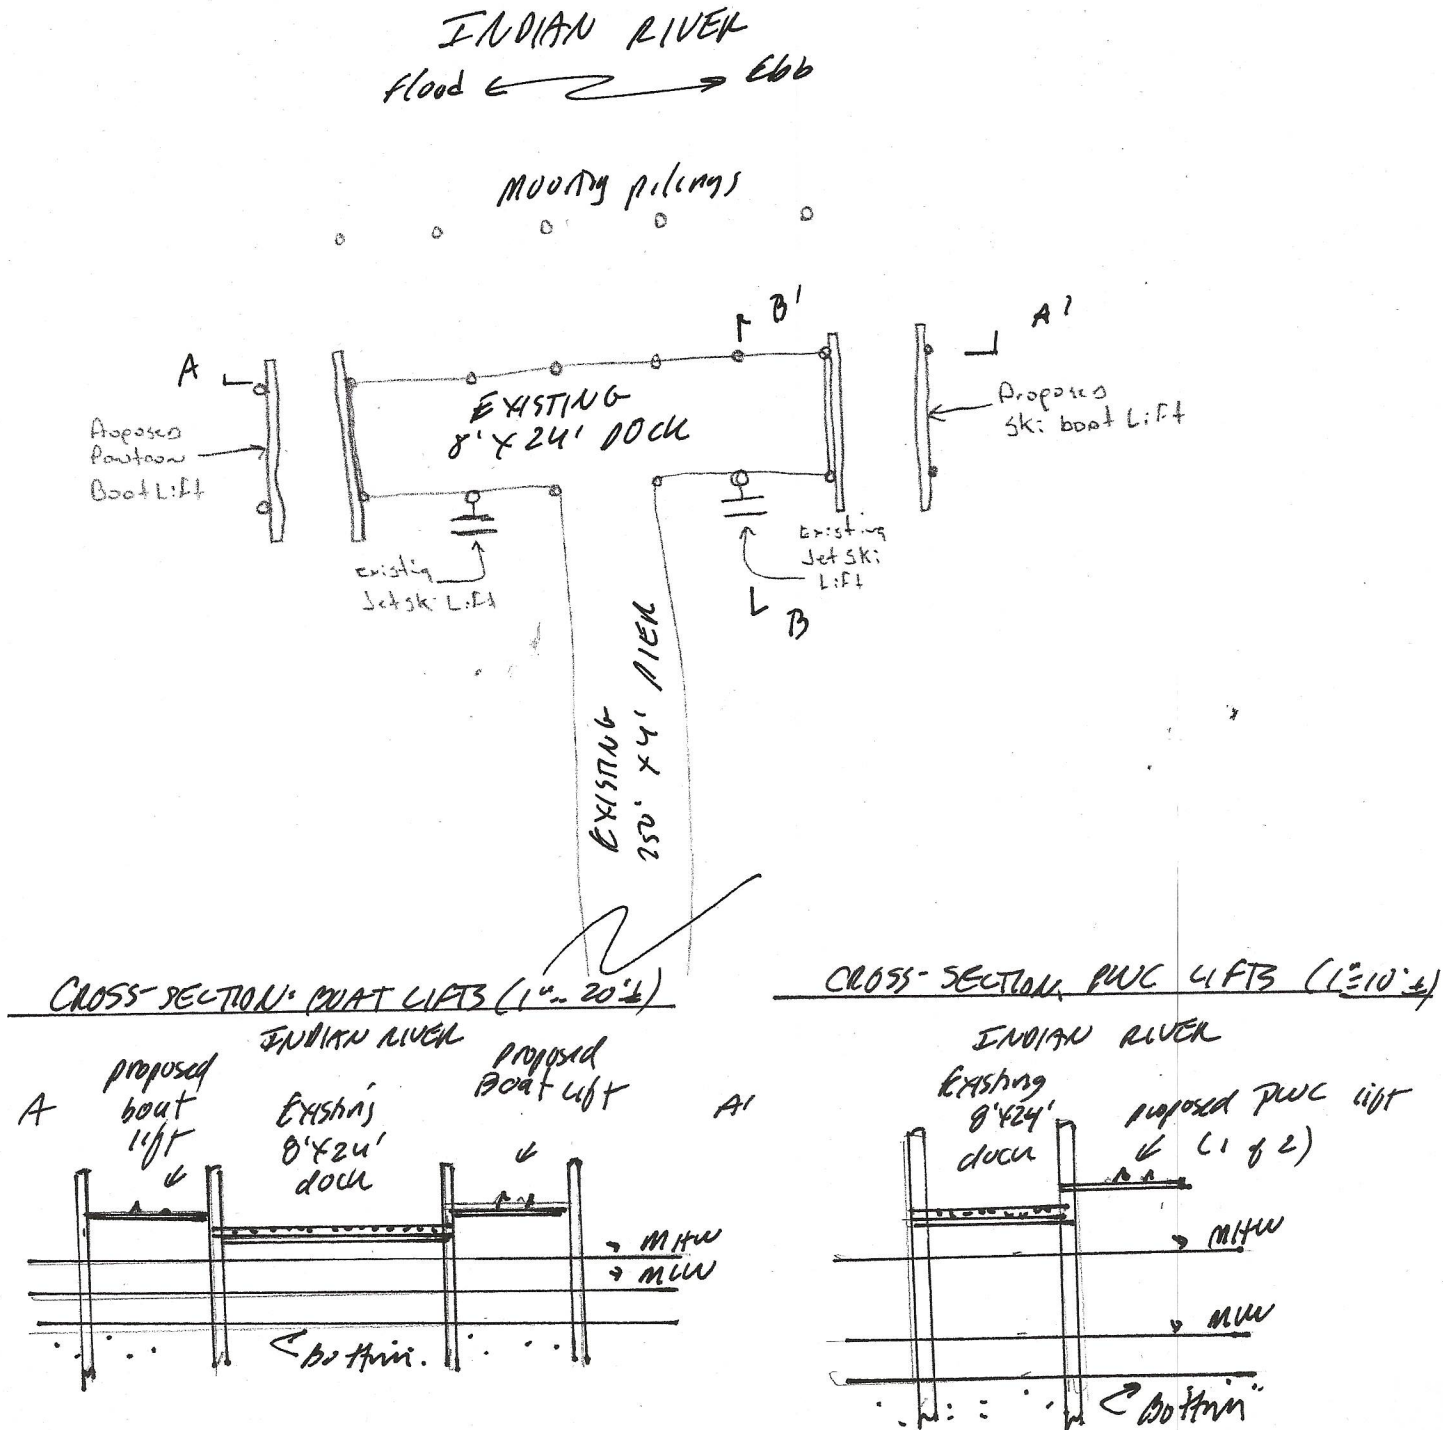 INDIAN RIVER
flood
Ebb
Mooring pilings
A
B'
A'
EXISTING
8' X 24' DOCK
Proposed
Pontoon
Boat Lift
Proposed
Ski boat Lift
existing
Jetski Lift
Existing
Jet Ski
Lift
B
EXISTING
250' X 4' PIER
CROSS-SECTION: BOAT LIFTS (1"= 20'±)
INDIAN RIVER
A
proposed
boat
lift
Existing
8'X24'
dock
proposed
Boat lift
A'
MHW
MLW
Bottom.
CROSS-SECTION: PWC LIFTS (1"=10'±)
INDIAN RIVER
Existing
8'X24'
dock
proposed PWC lift
(1 of 2)
MHW
MLW
Bottom